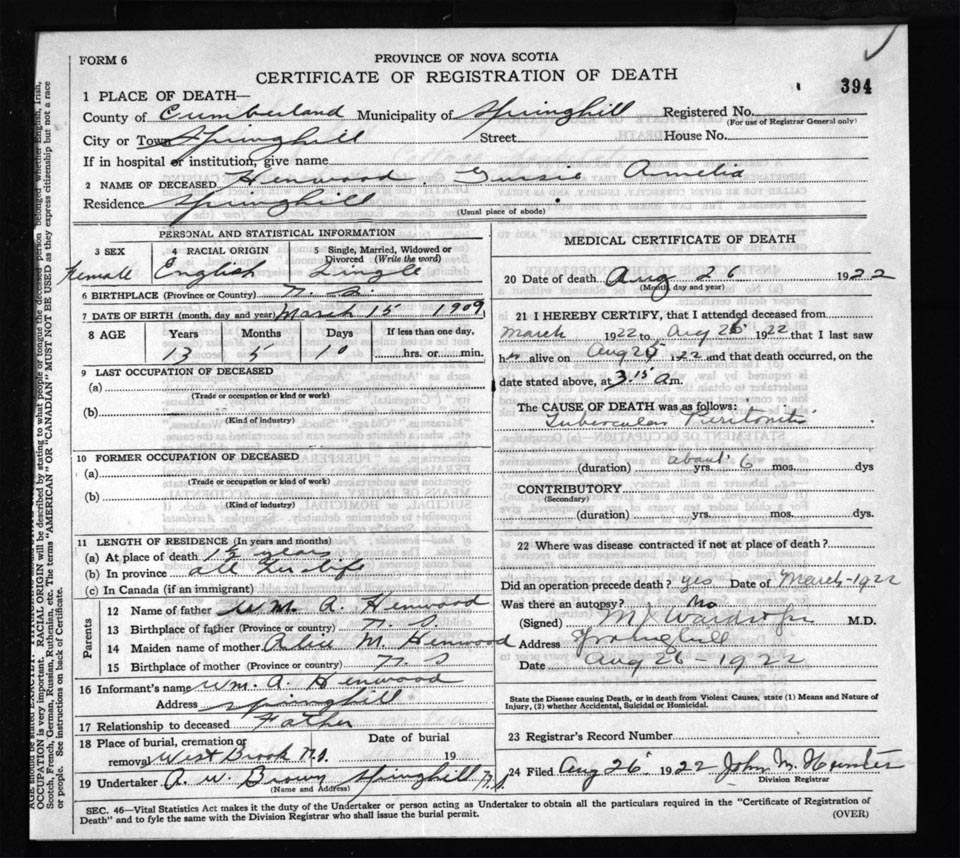 FORM 6
PROVINCE OF NOVA SCOTIA
CERTIFICATE OF REGISTRATION OF DEATH
394
1 PLACE OF DEATH—
County of Cumberland Municipality of Springhill Registered No.
(For use of Registrar General only)
City or Town Springhill Street House No.
If in hospital or institution, give name
2 NAME OF DECEASED Henwood, Amelia
Residence Springhill
(Usual place of abode)
PERSONAL AND STATISTICAL INFORMATION
3 SEX 4 RACIAL ORIGIN 5 Single, Married, Widowed or Divorced (Write the word)
Female English Single
6 BIRTHPLACE (Province or Country) N. S.
7 DATE OF BIRTH (month, day and year) March 15 1909
8 AGE Years Months Days If less than one day,
13 5 10 hrs. or min.
9 LAST OCCUPATION OF DECEASED
(a)
(Trade or occupation or kind or work)
(b)
(Kind of industry)
10 FORMER OCCUPATION OF DECEASED
(a)
(Trade or occupation or kind of work)
(b)
(Kind of industry)
11 LENGTH OF RESIDENCE (In years and months)
(a) At place of death 1½ years
(b) In province all her life
(c) In Canada (if an immigrant)
Parents
12 Name of father Wm. A. Henwood
13 Birthplace of father (Province or country) N. S.
14 Maiden name of mother Alice M. Henwood
15 Birthplace of mother (Province or country) N. S
16 Informant's name Wm. A. Henwood
Address Springhill
17 Relationship to deceased Father
18 Place of burial, cremation or removal West Brook N.S. Date of burial 19
19 Undertaker A. W. Brown Springhill N.S.
(Name and Address)
MEDICAL CERTIFICATE OF DEATH
20 Date of death Aug 26 1922
(Month, day and year)
21 I HEREBY CERTIFY, that I attended deceased from
March 1922 to Aug 26 1922 that I last saw
h alive on Aug 25 1922 and that death occurred, on the
date stated above, at 3.15 a m.
The CAUSE OF DEATH was as follows:
Tubercular Peritonitis
(duration) about yrs. 6 mos. dys
CONTRIBUTORY
(Secondary)
(duration) yrs. mos. dys.
22 Where was disease contracted if not at place of death?
Did an operation precede death? yes Date of March-1922
Was there an autopsy? No
(Signed) M.D.
Address Springhill
Date Aug 26-1922
State the Disease causing Death, or in death from Violent Causes, state (1) Means and Nature of
Injury, (2) whether Accidental, Suicidal or Homicidal.
23 Registrar's Record Number
24 Filed Aug 26 1922 John M. Hunter
Division Registrar
SEC. 46—Vital Statistics Act makes it the duty of the Undertaker or person acting as Undertaker to obtain all the particulars required in the "Certificate of Registration of
Death" and to fyle the same with the Division Registrar who shall issue the burial permit.
(OVER)
OCCUPATION is very important. RACIAL ORIGIN will be described by stating to what people or tongue the deceased person belonged whether English, Irish,
Scotch, French, German, Russian, Ruthenian, etc. The terms "AMERICAN" OR "CANADIAN" MUST NOT BE USED as they express citizenship but not a race
or people. See instructions on back of Certificate.